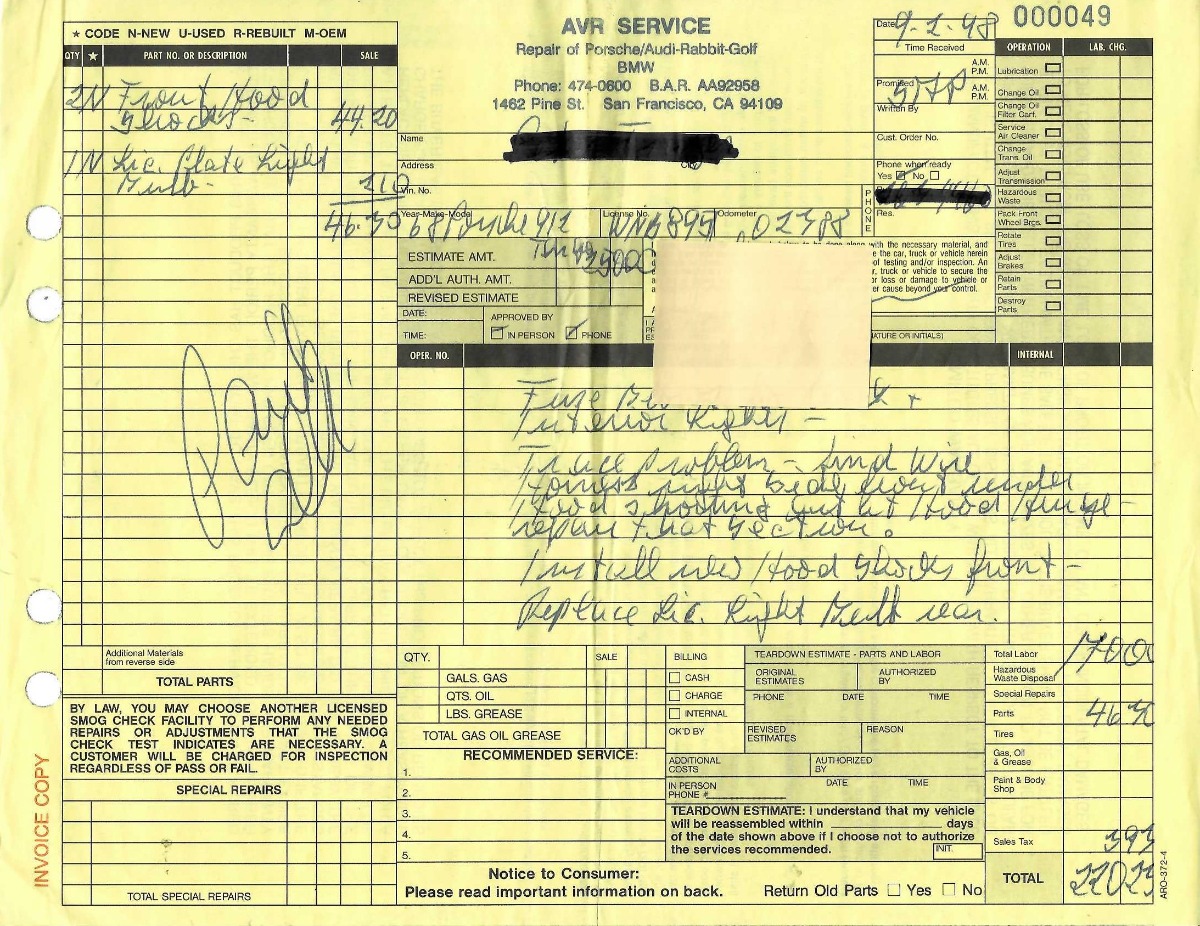 ★ CODE N-NEW U-USED R-REBUILT M-OEM
QTY ★ PART NO. OR DESCRIPTION SALE
2 N Front Hood
Shocks - 44.20
1 N Lic. Plate Light
Bulb - 2 10
46.30
Additional Materials
from reverse side
TOTAL PARTS
BY LAW, YOU MAY CHOOSE ANOTHER LICENSED
SMOG CHECK FACILITY TO PERFORM ANY NEEDED
REPAIRS OR ADJUSTMENTS THAT THE SMOG
CHECK TEST INDICATES ARE NECESSARY. A
CUSTOMER WILL BE CHARGED FOR INSPECTION
REGARDLESS OF PASS OR FAIL.
SPECIAL REPAIRS
TOTAL SPECIAL REPAIRS
INVOICE COPY
AVR SERVICE
Repair of Porsche/Audi-Rabbit-Golf
BMW
Phone: 474-0600 B.A.R. AA92958
1462 Pine St. San Francisco, CA 94109
Date 9-2-98
000049
Time Received A.M. P.M.
Promised A.M. P.M.
Written By
Name
Cust. Order No.
Address City
Phone when ready
Yes No
Vin. No.
PHONE
Res.
Year-Make-Model 68 Porsche 912
License No. WNB 895
Odometer 02388
ESTIMATE AMT.
ADD'L AUTH. AMT.
REVISED ESTIMATE
DATE:
TIME:
APPROVED BY
IN PERSON PHONE
with the necessary material, and
the car, truck or vehicle herein
of testing and/or inspection. An
car, truck or vehicle to secure the
for loss or damage to vehicle or
other cause beyond your control.
(SIGNATURE OR INITIALS)
OPERATION LAB. CHG.
Lubrication
Change Oil
Change Oil
Filter Cart.
Service
Air Cleaner
Change
Trans. Oil
Adjust
Transmission
Hazardous
Waste
Pack Front
Wheel Brgs.
Rotate
Tires
Adjust
Brakes
Retain
Parts
Destroy
Parts
OPER. NO. INTERNAL
Fuse
Interior Lights -
Trace Problem - find Wire
Harness right side front under
Hood shorting out at Hood Hinge -
repair that section.
Install new Hood Shocks front -
Replace Lic. Light Bulb rear.
QTY. SALE
GALS. GAS
QTS. OIL
LBS. GREASE
TOTAL GAS OIL GREASE
RECOMMENDED SERVICE:
1.
2.
3.
4.
5.
BILLING
CASH
CHARGE
INTERNAL
OK'D BY
TEARDOWN ESTIMATE - PARTS AND LABOR
ORIGINAL ESTIMATES AUTHORIZED BY
PHONE DATE TIME
REVISED ESTIMATES REASON
ADDITIONAL COSTS AUTHORIZED BY
IN PERSON DATE TIME
PHONE #
TEARDOWN ESTIMATE: I understand that my vehicle
will be reassembled within ________ days
of the date shown above if I choose not to authorize
the services recommended. INIT.
Notice to Consumer:
Please read important information on back.
Return Old Parts Yes No
Total Labor 170 00
Hazardous
Waste Disposal
Special Repairs
Parts 46 30
Tires
Gas, Oil
& Grease
Paint & Body
Shop
Sales Tax 3 93
TOTAL 220 23
ARO-372-4